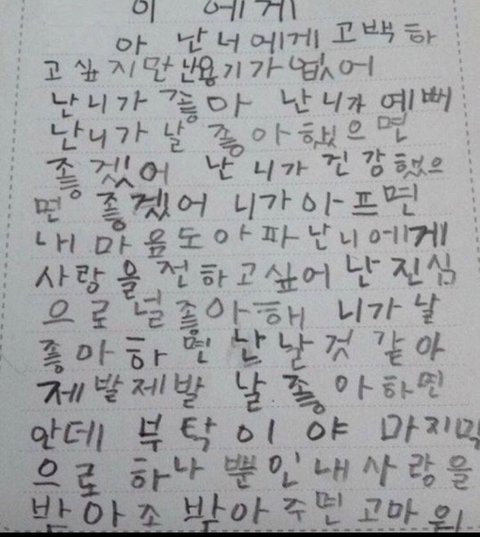 이 에게
아 난 너에게 고백하
고 싶지만 난 용기가 없어
난 니가 좋아 난 니가 예뻐
난 니가 날 좋아했으면
좋겠어 난 니가 건강했으
면 좋겠어 니가 아프면
내 마음도 아파 난 니에게
사랑을 전하고 싶어 난 진심
으로 널 좋아해 니가 날
좋아하면 난 날 것 같아
제발 제발 날 좋아하면
안데 부탁이야 마지막
으로 하나 뿐인 내 사랑을
받아조 받아주면 고마워